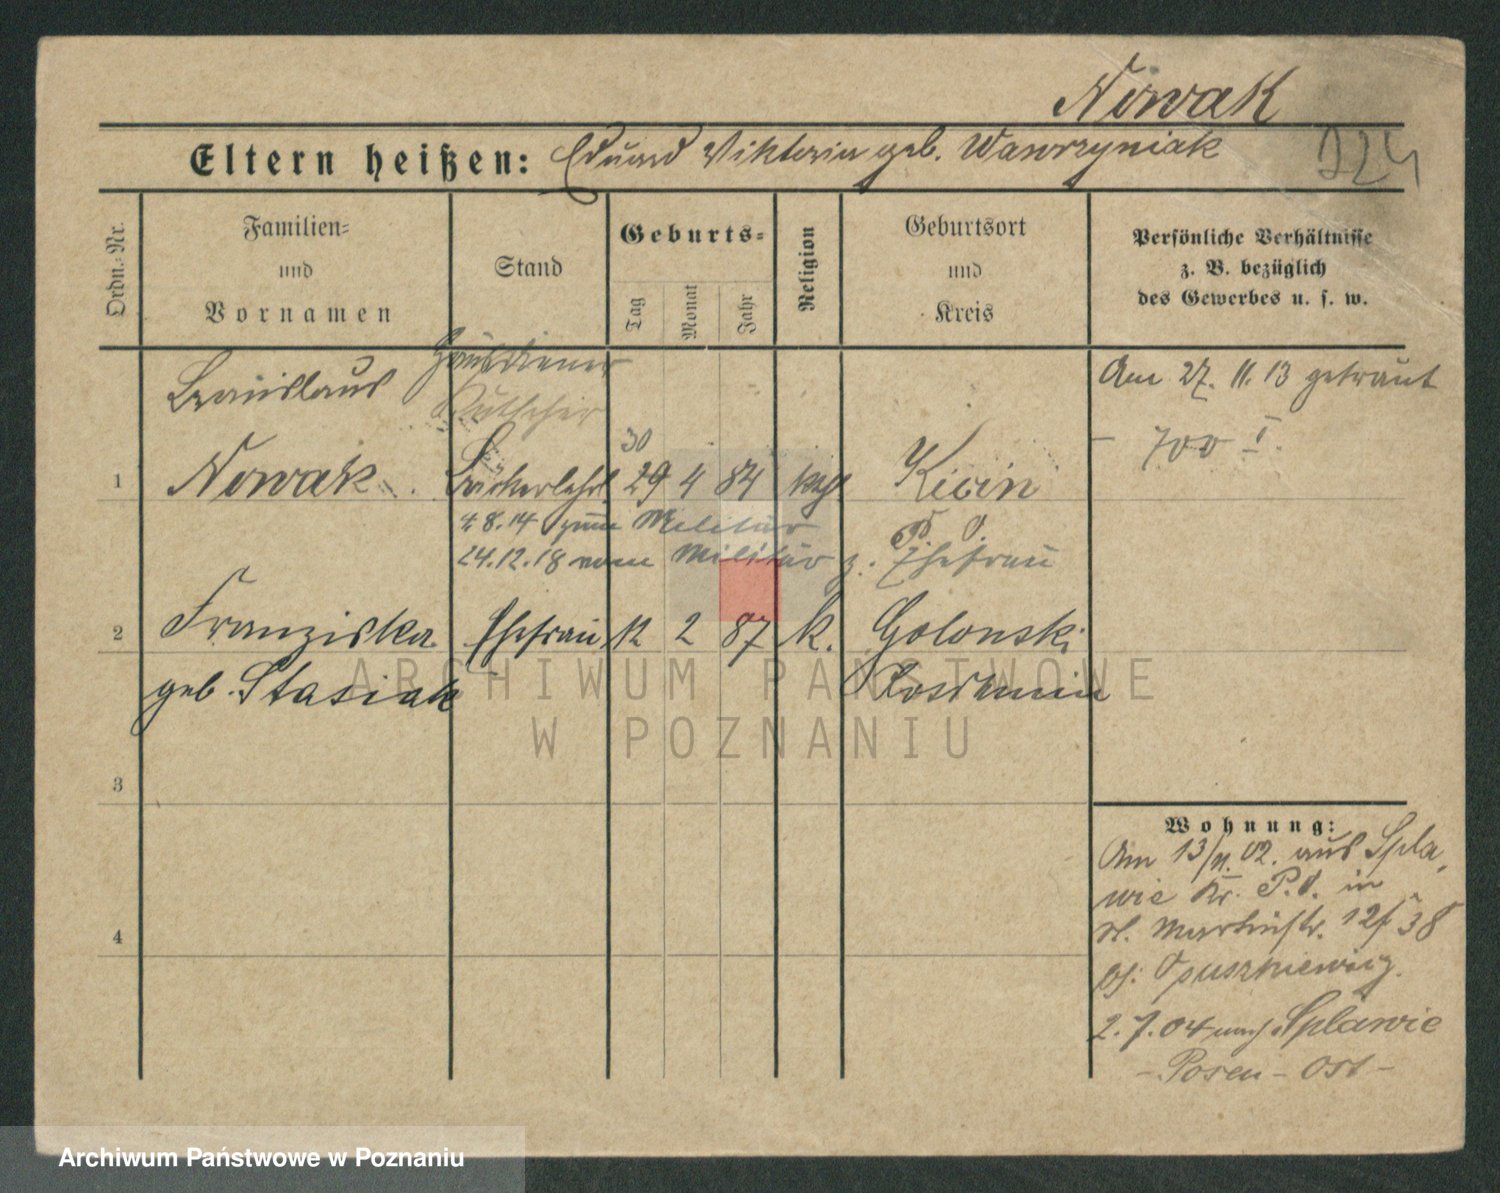 Nowak
Eltern heißen: Eduard Viktoria geb. Wawrzyniak
Ordn.-Nr.
Familien- und Vornamen
Stand
Geburts-
Tag
Monat
Jahr
Religion
Geburtsort und Kreis
Persönliche Verhältnisse
z. B. bezüglich
des Gewerbes u. s. w.
Hausdiener
Am 27. 11. 13 getraut
Kutscher
700 I.
30
1 Nowak 29 4 84 kath Kicin
4.8.14 zum Militär P. O.
24.12.18 vom Militär z. Ehefrau
2 Franziska Ehefrau 12 2 87 k. Golonski
geb. Stasiak
3
4
Wohnung:
Am 13/11. 02. aus Spla-
wie Kr. P. O. in
St. Martinstr. 38
2. 7. 04 nach Splawie
- Posen - Ost -
ARCHIWUM PAŃSTWOWE
W POZNANIU
Archiwum Państwowe w Poznaniu